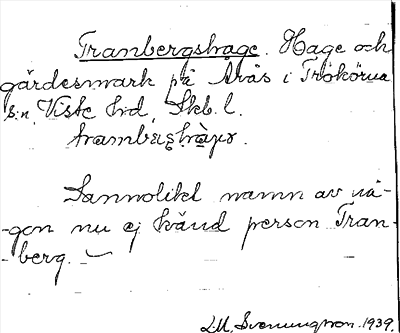 Tranbergshage. Hage och
gärdesmark på Åsås i Trökörna
s:n, Viste hd, Skb. l.
Sannolikt namn av nå-
-gon nu ej känd person Tran-
-berg.
L.M. Svenungsson. 1939.